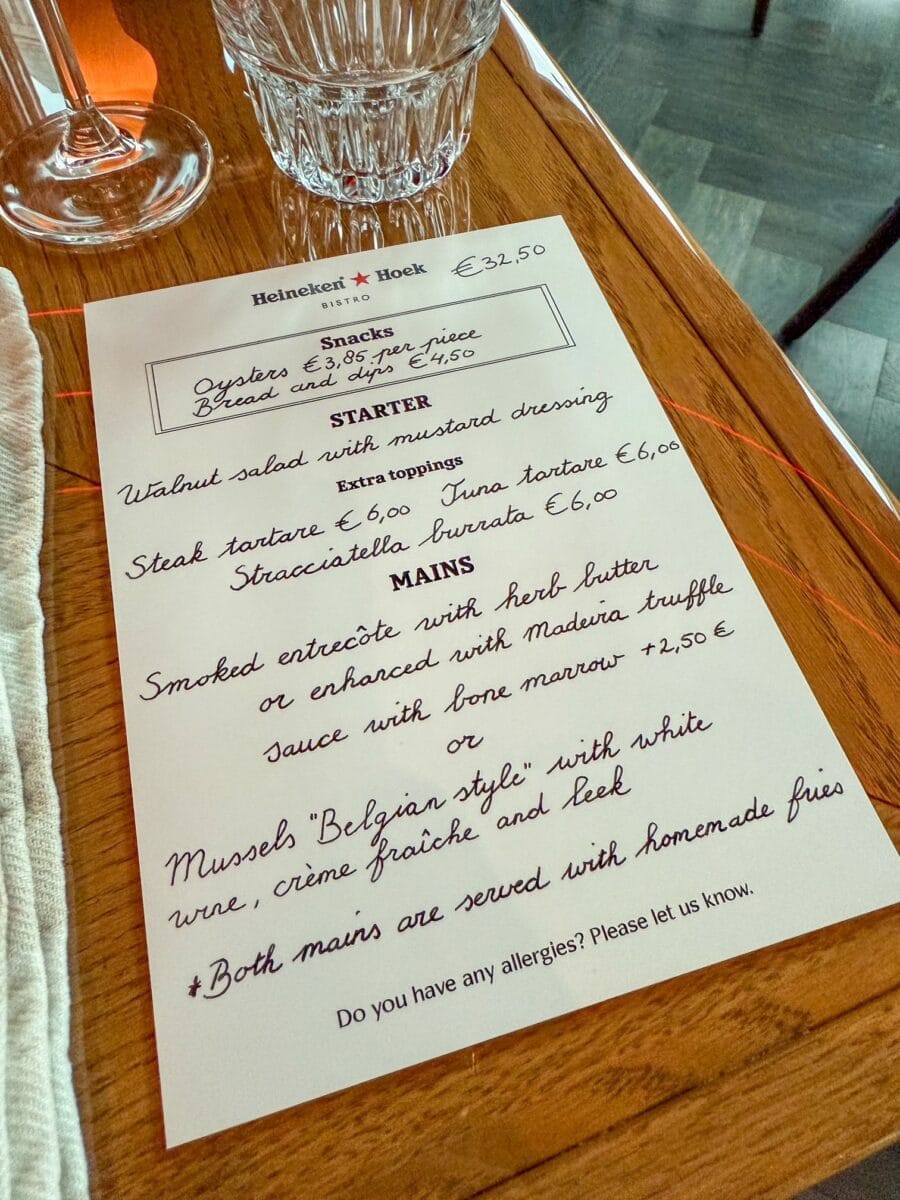 Heineken ★ Hoek €32,50
BISTRO
Snacks
Oysters €3,85 per piece
Bread and dips €4,50
STARTER
Walnut salad with mustard dressing
Extra toppings
Steak tartare €6,00 Tuna tartare €6,00
Stracciatella burrata €6,00
MAINS
Smoked entrecôte with herb butter
or enhanced with Madeira truffle
sauce with bone marrow +2,50 €
or
Mussels "Belgian style" with white
wine, crème fraîche and leek
*Both mains are served with homemade fries
Do you have any allergies? Please let us know.